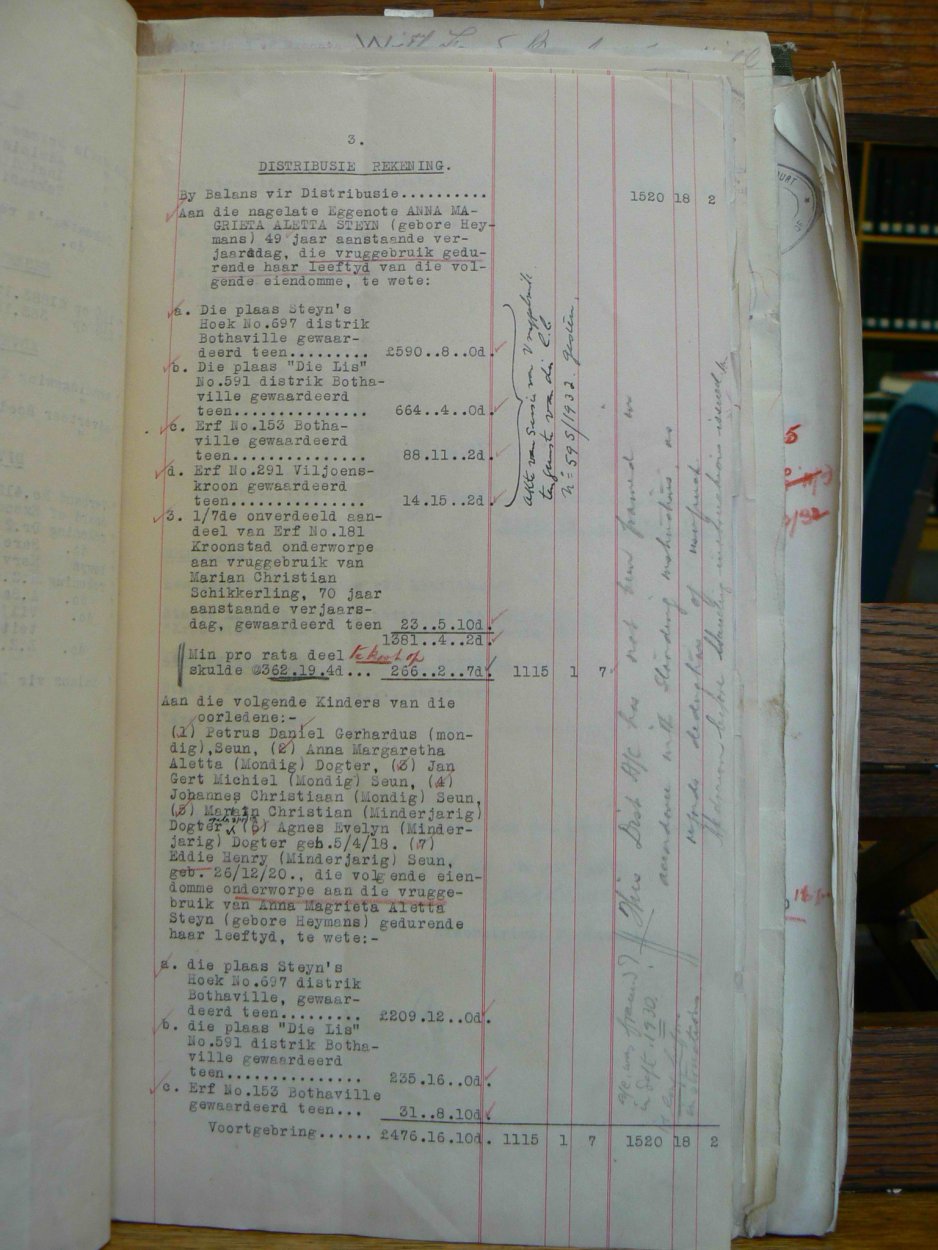 3.
DISTRIBUSIE REKENING.
By Balans vir Distribusie.......... 1520 18 2
Aan die nagelate Eggenote ANNA MA-
GRIETA ALETTA STEYN (gebore Hey-
mans) 49 jaar aanstaande ver-
jaardag, die vruggebruik gedu-
rende haar leeftyd van die vol-
gende eiendomme, te wete:
a. Die plaas Steyn's
Hoek No.697 distrik
Bothaville gewaar-
deerd teen......... £590..8..0d.
b. Die plaas "Die Lis"
No.591 distrik Botha-
ville gewaardeerd
teen............... 664..4..0d.
c. Erf No.153 Botha-
ville gewaardeerd
teen............... 88.11..2d.
d. Erf No.291 Viljoens-
kroon gewaardeerd
teen............... 14.15..2d.
3. 1/7de onverdeeld aan-
deel van Erf No.181
Kroonstad onderworpe
aan vruggebruik van
Marian Christian
Schikkerling, 70 jaar
aanstaande verjaars-
dag, gewaardeerd teen 23..5.10d.
1381..4..2d.
Min pro rata deel te kort op
skulde @362.19.4d... 266..2..7d. 1115 1 7
Aan die volgende Kinders van die
oorledene:-
(1) Petrus Daniel Gerhardus (mon-
dig),Seun, (2) Anna Margaretha
Aletta (Mondig) Dogter, (3) Jan
Gert Michiel (Mondig) Seun, (4)
Johannes Christiaan (Mondig) Seun,
(5) Christian (Minderjarig)
Dogter, (6) Agnes Evelyn (Minder-
jarig) Dogter geb.5/4/18. (7)
Eddie Henry (Minderjarig) Seun,
geb. 26/12/20., die volgende eien-
domme onderworpe aan die vrugge-
bruik van Anna Magrieta Aletta
Steyn (gebore Heymans) gedurende
haar leeftyd, te wete:-
a. die plaas Steyn's
Hoek No.697 distrik
Bothaville, gewaar-
deerd teen......... £209.12..0d.
b. die plaas "Die Lis"
No.591 distrik Botha-
ville gewaardeerd
teen............... 235.16..0d.
c. Erf No.153 Bothaville
gewaardeerd teen... 31..8.10d.
Voortgebring...... £476.16.10d. 1115 1 7 1520 18 2
Akte van Sessie van Vruggebruik
ten gunste van die
No 595/1932
This Dist A/c has not been framed in
accordance with standing instructions as
regards deduction of usufruct
before standing instructions issued
in Sept. 1930.